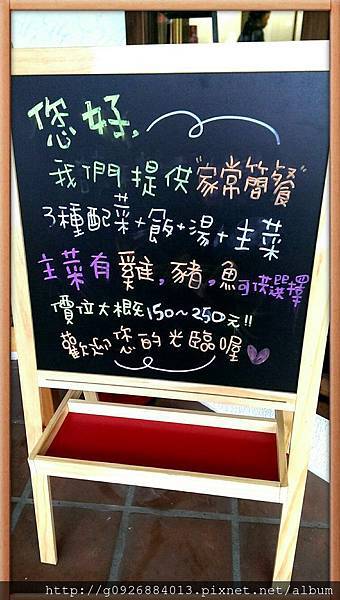 您好,
我們提供"家常簡餐"
3種配菜+飯+湯+主菜
主菜有雞,豬,魚可供選擇
價位大概150~250元!!
歡迎您的光臨喔
http://g0926884013.pixnet.net/album